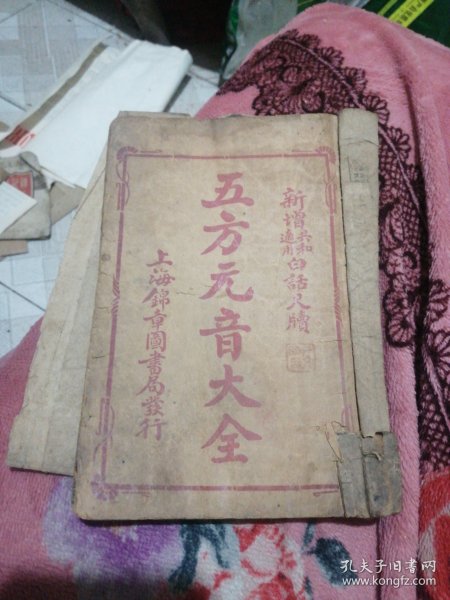 新增共和適用白話尺牘
五方元音大全
上海錦章圖書局發行
孔夫子旧书网
www.kongfz.com